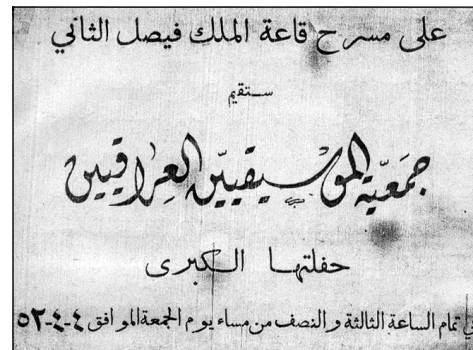 على مسرح قاعة الملك فيصل الثاني
ستقيم
جمعَيّة الموسيقييّن العِراقيين
حفلتها الكبرى
في تمام الساعة الثالثة والنصف من مساء يوم الجمعة الموافق ٤-٤-٥٢